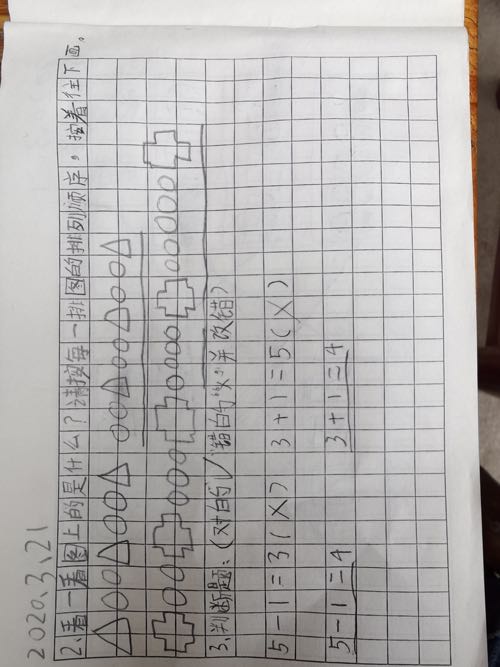 2020.3.21
2.看一看图上的是什么?请按每一排图的排列顺序。接着往下画。
3.判断题:(对的"√"错的"×"并改错)
5-1=3(×) 3+1=5(×)
5-1=4 3+1=4